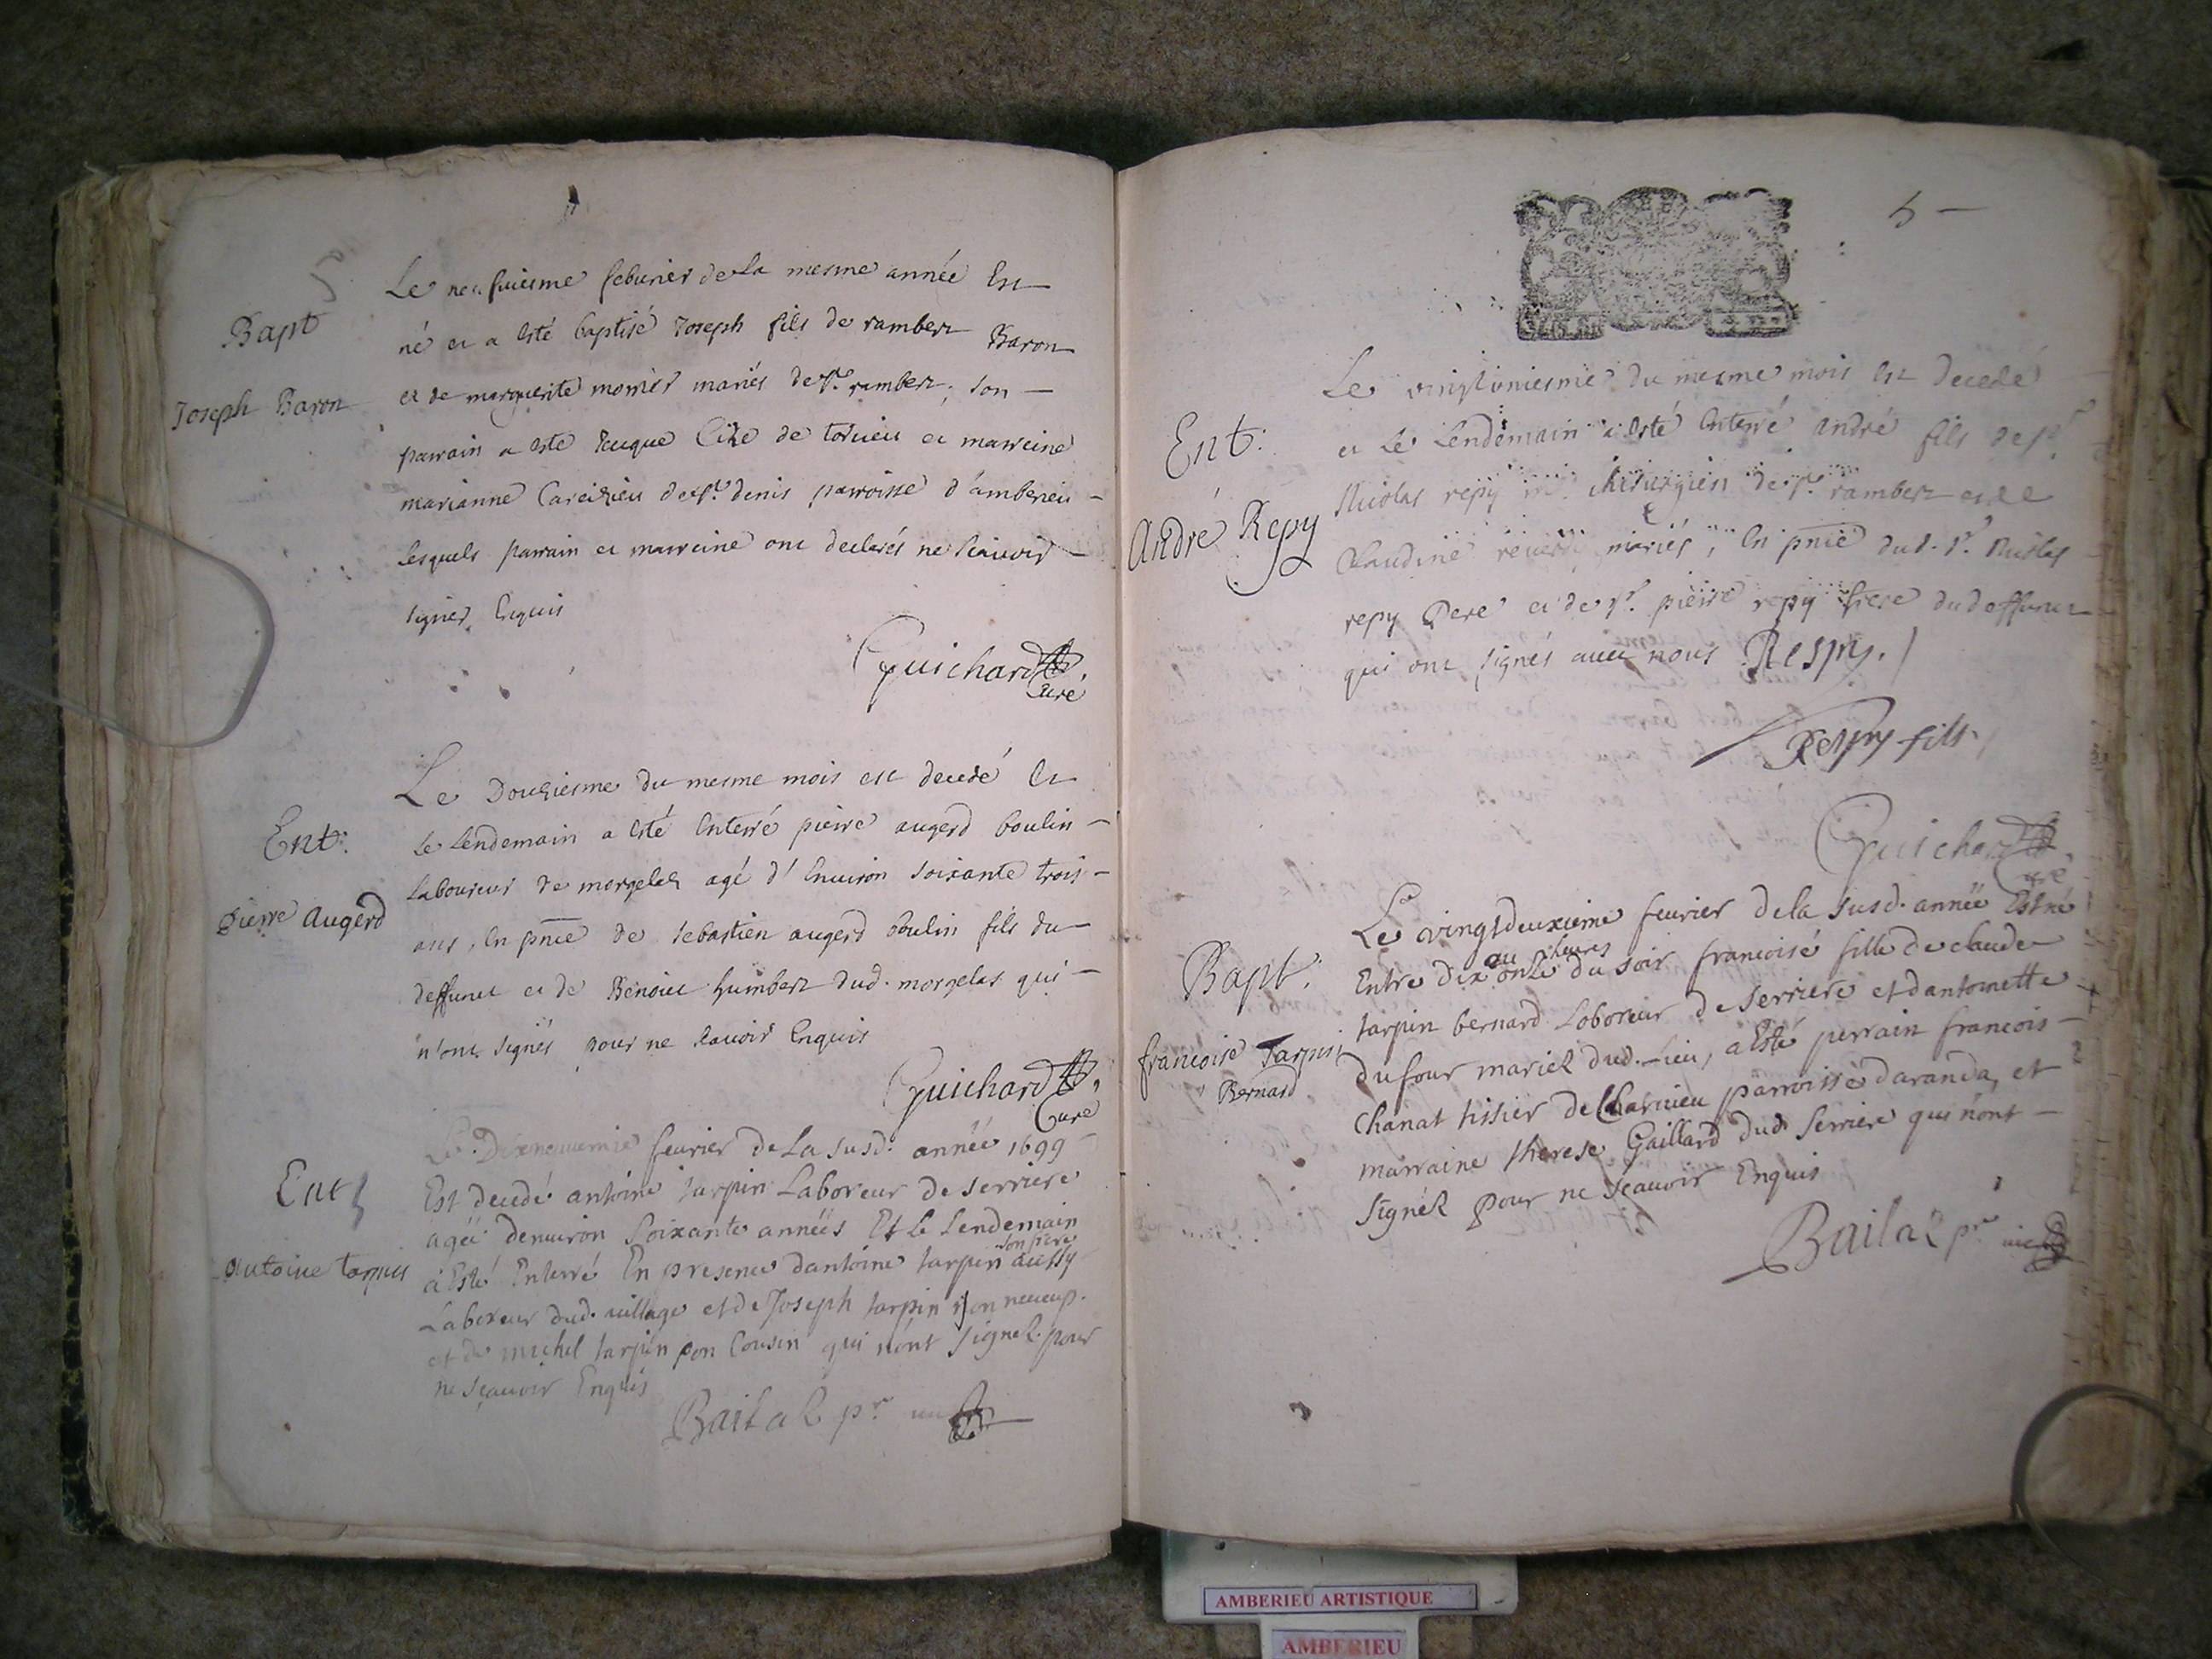 Bapt
Joseph Baron
Le neufuiesme feburier de La mesme année Est
né et a esté baptisé Joseph fils de rambert Baron
et de marguerite mariés de St. rambert, son
parrain a este de torcieu et marreine
marianne de St. denis parroisse d'amberieu
lesquels parrain et marreine ont declarés ne scauoir
signer Enquis
Guichard
Curé
Ent.
Pierre Augerd
Le Douziesme du mesme mois est decedé Et
Le Lendemain a esté Enterré pierre augerd boulin
Laboureur de morgelas agé d'Enuiron soixante trois
ans, En pnce de sebastien augerd boulin fils du
deffunct et de Benoict humbert dud. morgelas qui
n'ont signés pour ne scauoir Enquis
Guichard
Curé
Ent
Antoine tarpin
Le Dixneuuemie feurier de La susd. année 1699
Est decedé antoine tarpin Laboreur de serriere
agéé denuiron soixante annéés Et Le Lendemain
à Esté Enterré En presence dantoine tarpin son frere aussy
Laboreur dud. village et de Joseph tarpin son neueup.
et de michel tarpin son Cousin qui nont signez pour
ne sçauoir Enquis
Bailaz pr
5
Ent.
André Repy
Le vingtuniesme du mesme mois est decedé
et Le Lendemain a esté enterré andré fils de sr.
Nicolas repy chirurgien de St. rambert et de
Claudine mariés, En pnce dud. sr. Nicolas
repy Pere et de sr. pierre repy frere du deffunct
qui ont signés auec nous Respy.
Respy fils.
Guichard
Bapt.
francoise Tarpin
Bernard
Le vingtdeuxieme feurier dela susd. annéé Est né
Entre dix ou onze heures du soir francoise fille de claude
tarpin bernard Laboreur de serriere et dantoinette
dufour mariez dud. Lieu, a Esté perrain francois
Chanat tissier de parroisse daranda, et
marraine therese Gaillard dud. serriere qui nont
signéz pour ne sçauoir Enquis
Bailaz pr vic
AMBERIEU ARTISTIQUE
AMBERIEU